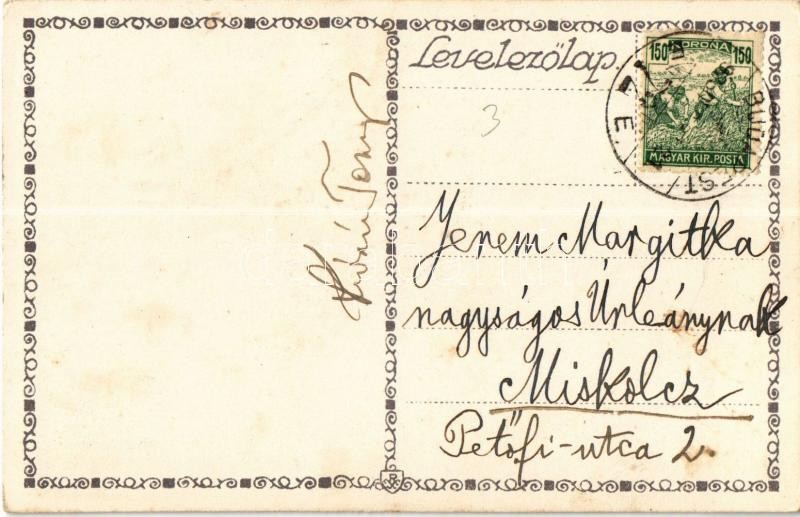 Levelezőlap.
150 KORONA 150
MAGYAR KIR. POSTA
BUDAPEST
3
Jerem Margitka
nagyságos Úrleánynak
Miskolcz
Petőfi-utca 2.